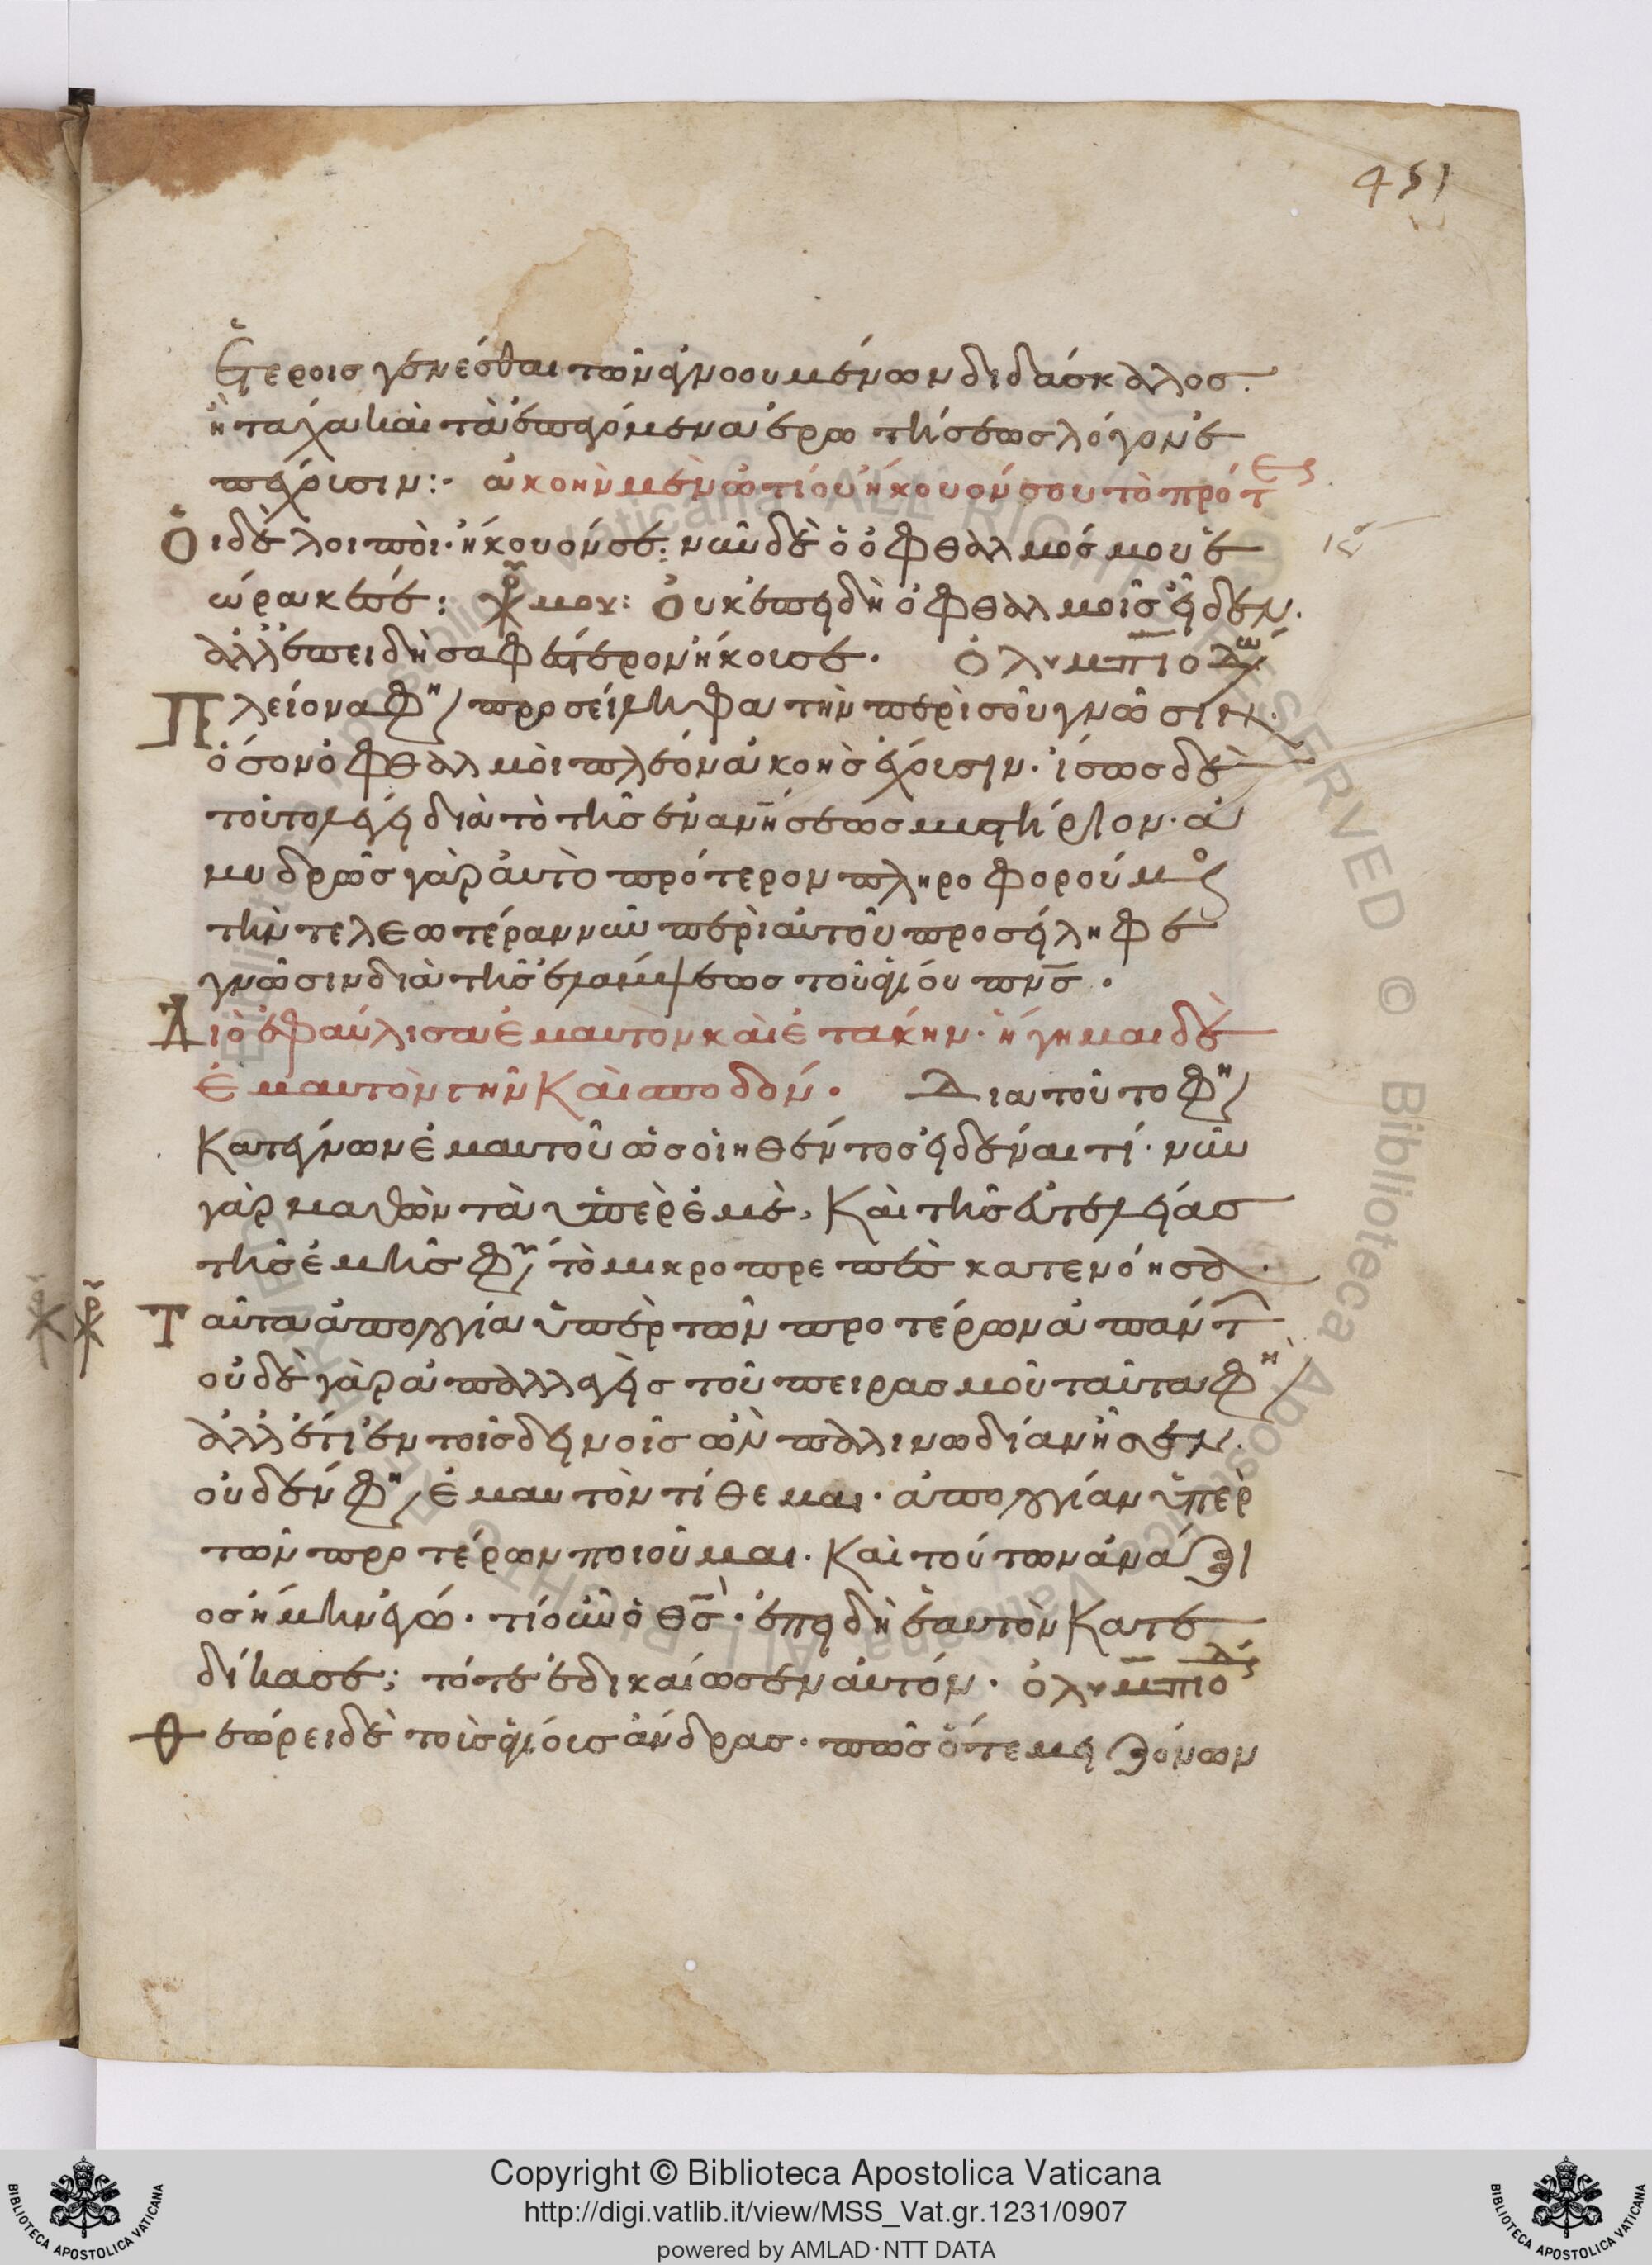 451
ἑτεροις γενέσθαι τῶν ἀγνοουμένων διδάσκαλος.
ἢ τάχα καὶ τὰ ἑπόμενα ἐρωτήσεως λόγον ἐ
πέχουσιν:· ἀκοὴν μὲν ὠτὸς ἤκουόν σου τὸ πρότ
Οἱ δὲ λοιποὶ· ἤκουόν σε: νῦν δὲ ὁ ὀφθαλμός μου ἑ
ώρακέ σε: χρ μου: Οὐκ ἐπειδὴ ὀφθαλμοῖς εἶδεν.
ἀλλ ἐπειδὴ σαφέστερον ἤκουσε· ὀλυμπιο
Πλείονα φη προσείληφα τὴν περὶ σοῦ γνῶσιν.
ὅσον ὀφθαλμοὶ πλέον ἀκοῆς ἔχουσιν· ἴσως δὲ
τοῦτο λέγει διὰ τὸ τῆς ἐναν̅ήσεως μυστήριον· ἀ
μυδρῶς γὰρ αὐτὸ πρότερον πληροφορούμο
τὴν τελεωτέραν νῦν περὶ αὐτοῦ προσείληφε
γνῶσιν διὰ τῆς ἐλλάμψεως τοῦ ἁγίου πν̅ς.
Διὸ ἐφαύλισα ἐμαυτὸν καὶ ἐτάκην· ἥγημαι δὲ
ἐμαυτὸν γῆν Καὶ σποδόν· Δια τοῦτο φη
Κατέγνων ἐμαυτοῦ ὡς οἰηθέντος εἰδέναι τί· νῦν
γὰρ μαθὼν τὰ ὑπὲρ ἐμὲ, Καὶ τῆς εὐτελείας
τῆς ἐμῆς φη τὸ μικροπρεπὲς κατενόησα.
Ταῦτα ἀπολογία ὑπὲρ τῶν προτέρων ἁπάντ
οὐδὲ γὰρ ἀπαλλαγεὶς τοῦ πειρασμοῦ ταῦτα φη
ἀλλ ἔτι ἐν τοῖς δεινοῖς ὢν παλινωδίαν ᾖσεν.
οὐδέν φη ἐμαυτὸν τίθεμαι· ἀπολογίαν ὑπὲρ
τῶν προτέρων ποιοῦμαι· Καὶ τούτων ἀνάξι
ος ἤμην ἐγώ· τί οὖν ὁ θ̅ς· ἐπειδὴ ἑαυτὸν Κατε
δίκασε; τότε ἐδικαίωσεν αὐτόν· ὀλυμπιο
Θεώρει δὲ τοὺς ἁγίους ἄνδρας· πῶς ὅτε μειζόνων
Copyright © Biblioteca Apostolica Vaticana
http://digi.vatlib.it/view/MSS_Vat.gr.1231/0907
powered by AMLAD·NTT DATA
BIBLIOTECA APOSTOLICA VATICANA
BIBLIOTECA APOSTOLICA VATICANA